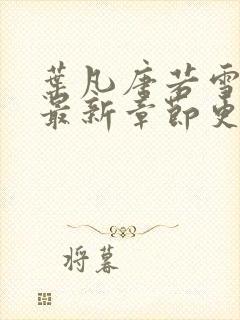 葉凡唐若雪
最新章節更
将暮